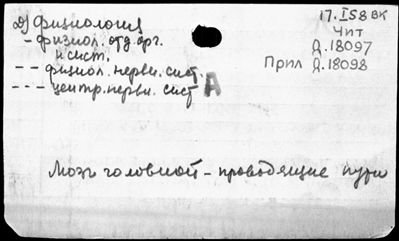 д) физиология
- физиол. отд. орг.
и сист.
- - физиол. нервн. сист.
- - - центр. нервн. сист
А
17. I58 ВК
Чит
Д.18097
Прил Д.18098
Мозг головной - проводящие пути